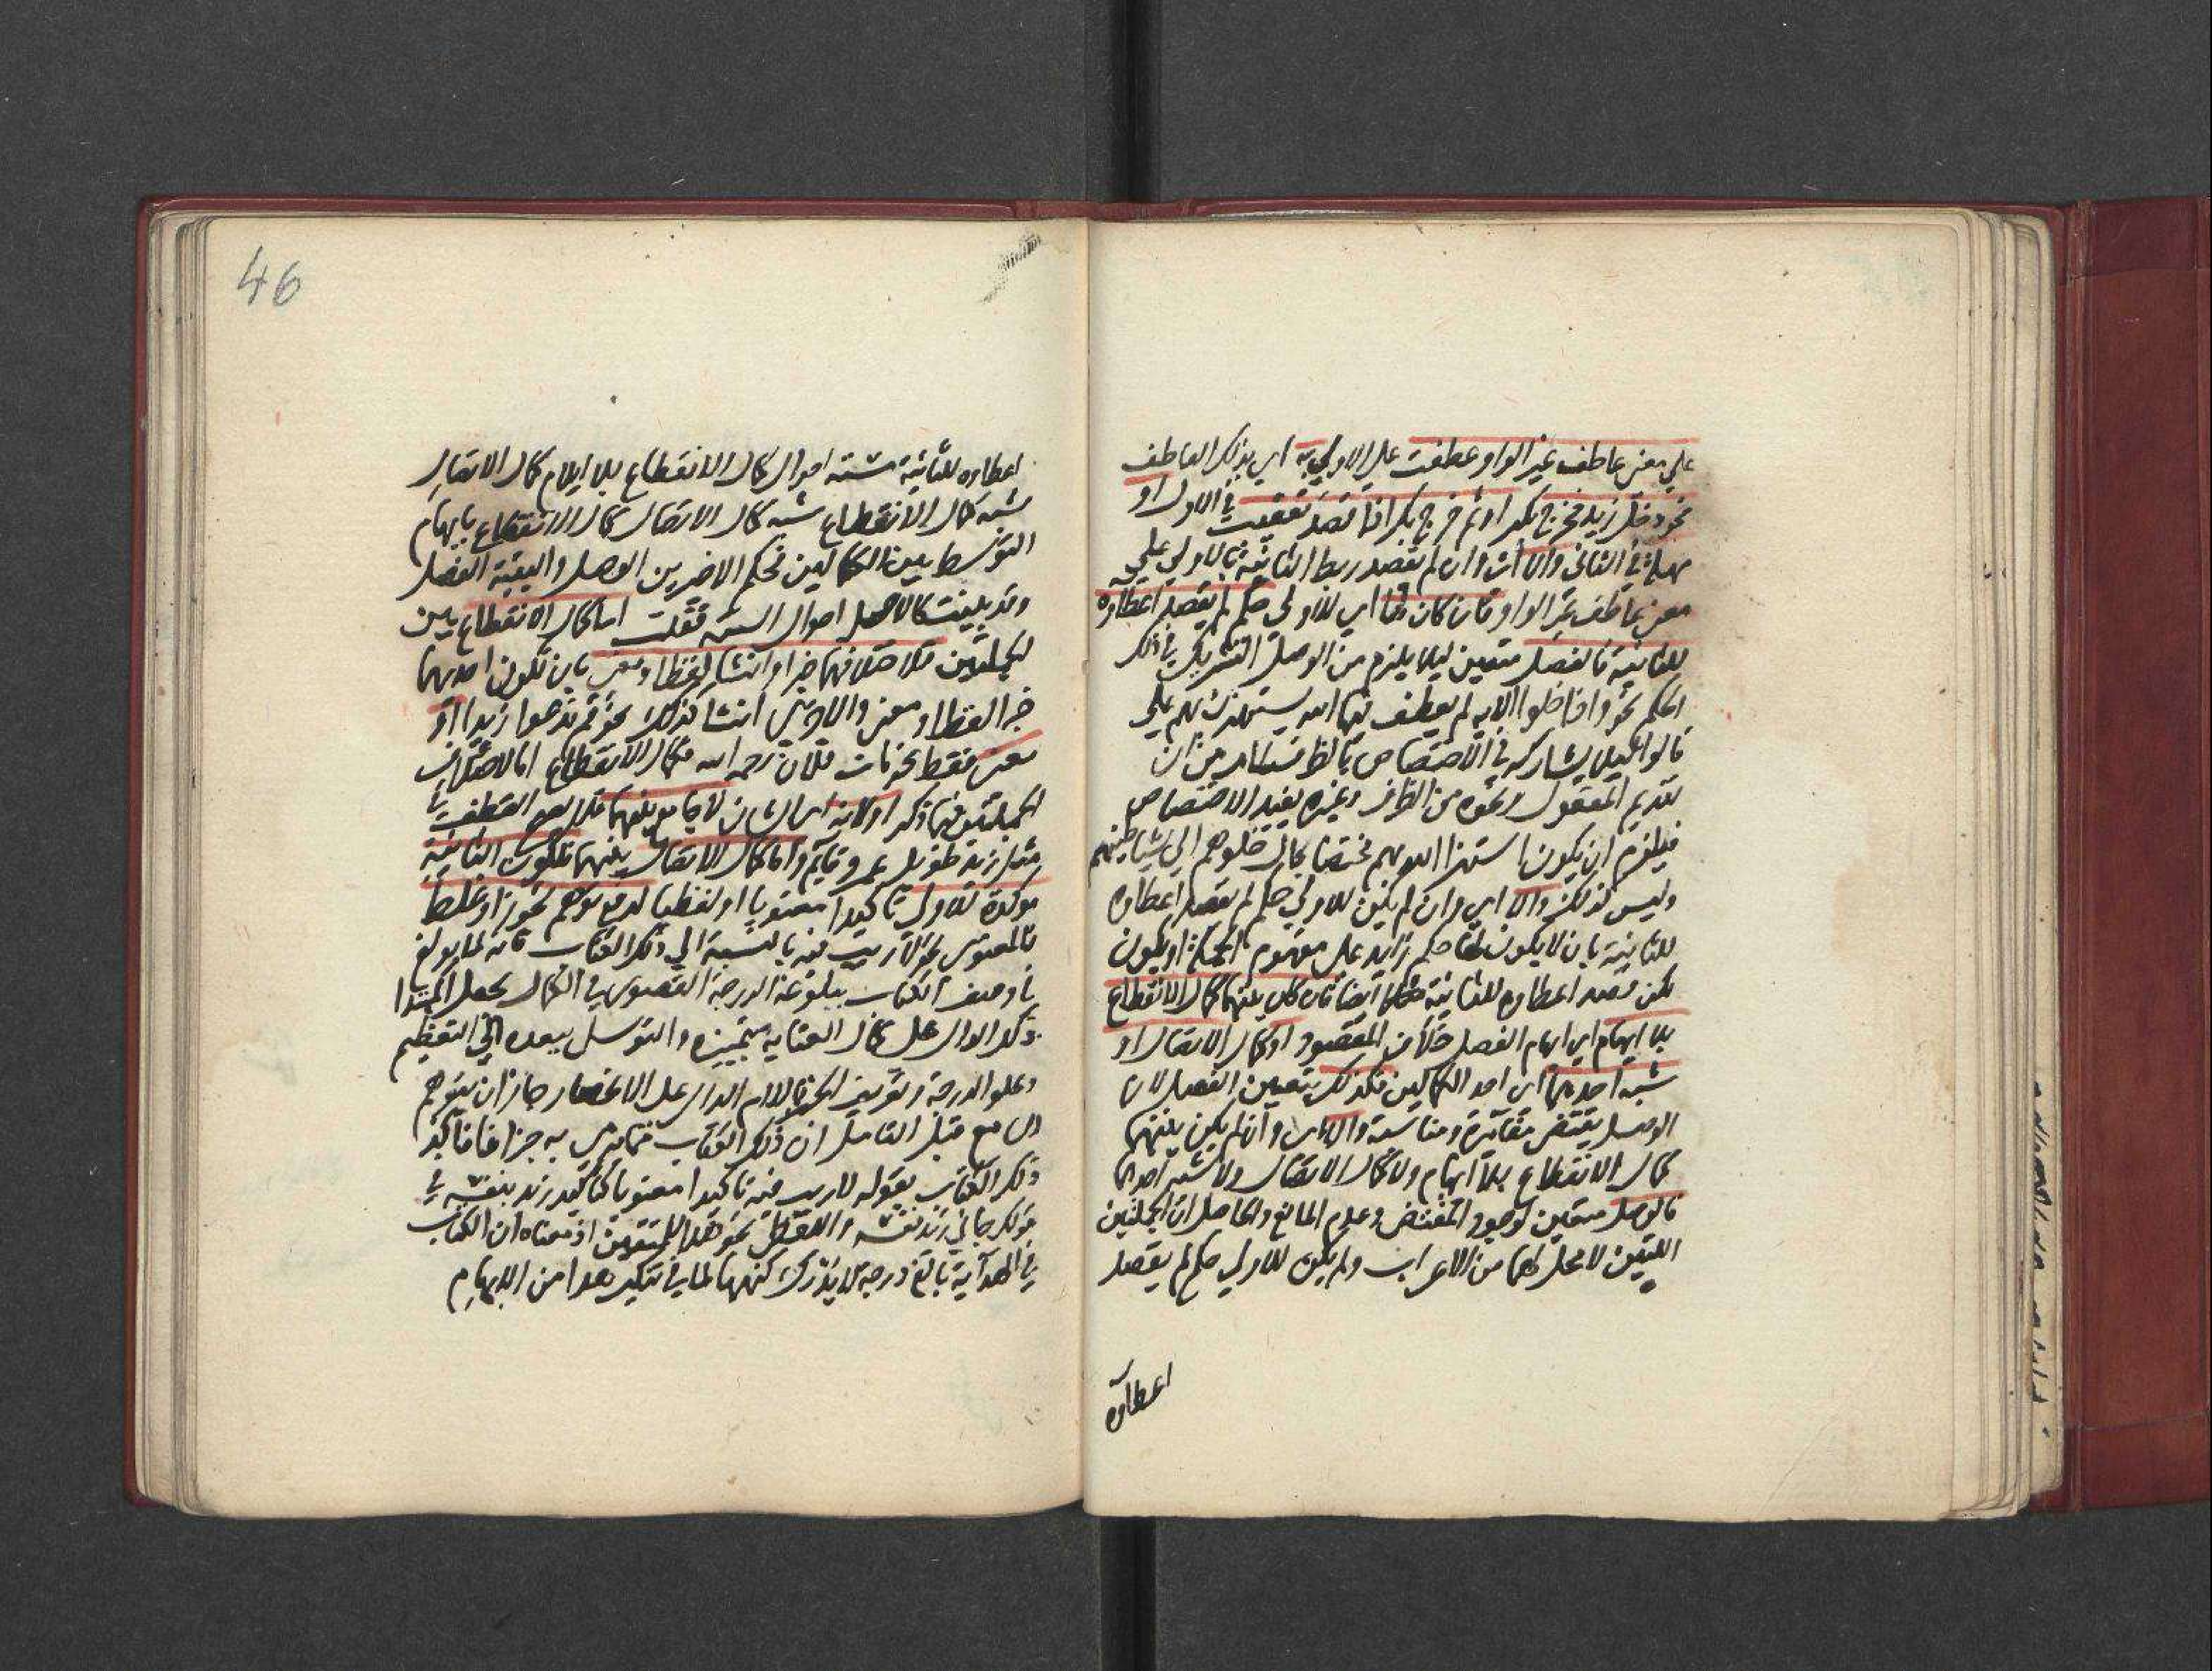 علي معنى عاطف غير الواو عطفت علي الاولي به اي بذلك العاطف
نحو دخل زيد فخرج بكر او ثم خرج بكر اذا قصد تعقيب في الاول او
مهلة في الثاني والا اي وان لم يقصد ربط الثانية بالاولي علي
معنى عاطف غير الواو فان كان لها اي للاولي حكم لم يقصد اعطاوه
للثانية فالفصل متعين ليلا يلزم من الوصل التشريك في ذلك
الحكم نحو واذا خلوا الاية لم يعطف فيها الله يستهزئ بهم علي
قالوا ليلا يشاركه في الاختصاص بالظرف من ان
تقديم المفعول ونحوه من الظرف وغيره يفيد الاختصاص
فيلزم ان يكون استهزا الله بهم مختصا بحال خلوهم الي شياطينهم
وليس كذلك والا اي وان لم يكن للاولي حكم لم يقصد اعطاوه
للثانية بان لا يكون لها حكم زايد علي مفهوم الجملة او يكون
لكن قصد اعطاوه للثانية ايضا فان كان بينهما كمال الانقطاع
بلا ايهام اي ايهام الفصل خلاف المقصود او كمال الاتصال او
شبه احدهما اي احد الكمالين فكذلك يتعين الفصل لان
الوصل يقتضي مغايرة ومناسبة والا اي وان لم يكن بينهما
كمال الانقطاع بلا ايهام ولا كمال الاتصال ولا شبه احدهما
فالوصل متعين لوجود المقتضي وعدم المانع والحاصل ان الجملتين
اللتين لا محل لهما من الاعراب ولم يكن للاولي حكم لم يقصد
اعطاوه
46
اعطاوه للثانية ستة احوال كمال الانقطاع بلا ايهام كمال الاتصال
شبه كمال الانقطاع شبه كمال الاتصال كمال الانقطاع بايهام
التوسط بين الكمالين فحكم الاخيرين الوصل والبقية الفصل
وقد احوال الستة فقلت اما كمال الانقطاع بين
الجملتين فلاختلافهما خبرا وانشا لفظا ومعنى بان تكون احديهما
خبرا لفظا ومعنى والاخرى انشا كذلك نحو قم تدعوا زيدا او
معنى فقط نحو مات فلان رحمه الله فكمال الانقطاع اما لاختلاف
الجملتين فيما ذكر او لانه اي الشان لا جامع بينهما فلا يصح العطف في
مثل زيد طويل عمرو قايم واما كمال الاتصال بينهما فلكون الثانية
موكدة للاولى تاكيدا معنويا او لفظيا لدفع توهم تجوز او غلط
فالمعنوى نحو لا ريب فيه بالنسبة الي ذلك الكتاب فانه لما بولغ
في وصف الكتاب ببلوغه الدرجة القصوى في الكمال بجعل المبتدا
ذلك الدال على كمال العناية بتمييزه والتوسل ببعده الي التعظيم
وعلو الدرجة وتعريف الخبر باللام الدال على الانحصار جاز ان يتوهم
السامع قبل التامل ان ذلك الكتاب مما يرمى به جزافا فاكد
ذلك الكتاب بقوله لا ريب فيه تاكيدا معنويا كتاكيد زيد بنفسه في
قولك جاني زيد نفسه واللفظي نحو هدا للمتقين اذ معناه ان الكتاب
في الهداية بالغ درجة لا يدرك كنهها لما في تنكير هدا من الابهام